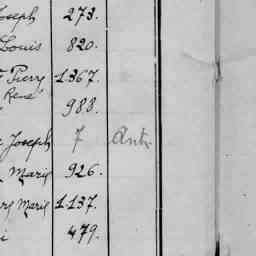 Joseph 273.
Louis 820.
Pierre 1.367.
René
988.
Joseph 7 Ant.
Marie 926.
Marie 1.137.
479.